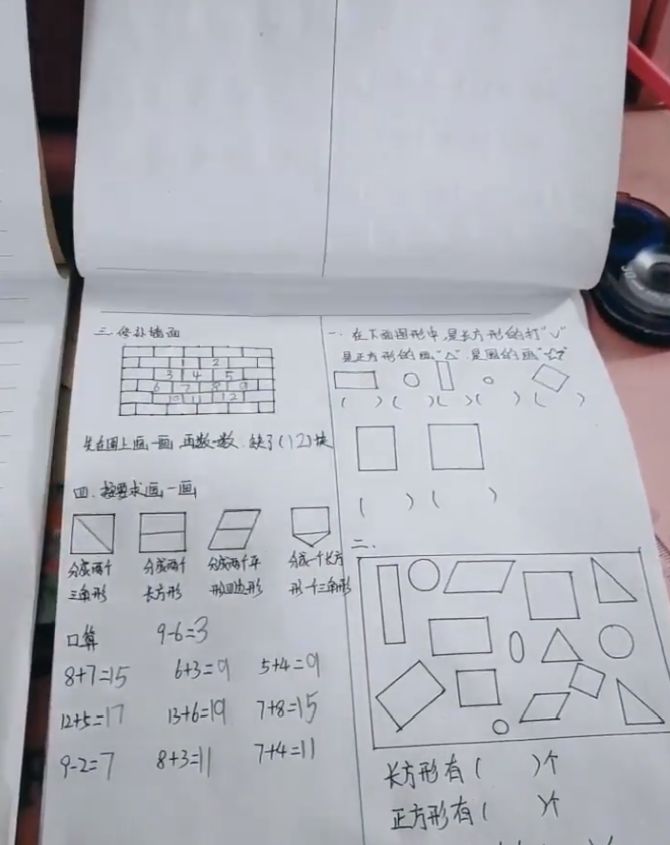 三、修补墙面
1 2
3 4 5
6 7 8 9
10 11 12
先在图上画一画,再数一数.缺了(12)块
四、按要求画一画
分成两个三角形
分成两个长方形
分成两个平形四边形
分成一个长方形一个三角形
口算 9-6=3
8+7=15 6+3=9 5+4=9
12+5=17 13+6=19 7+8=15
9-2=7 8+3=11 7+4=11
一、在下面图形中,是长方形的打"√"
是正方形的画"△",是圆的画"☆"
( ) ( ) ( ) ( ) ( )
( ) ( )
二、
长方形有( )个
正方形有( )个